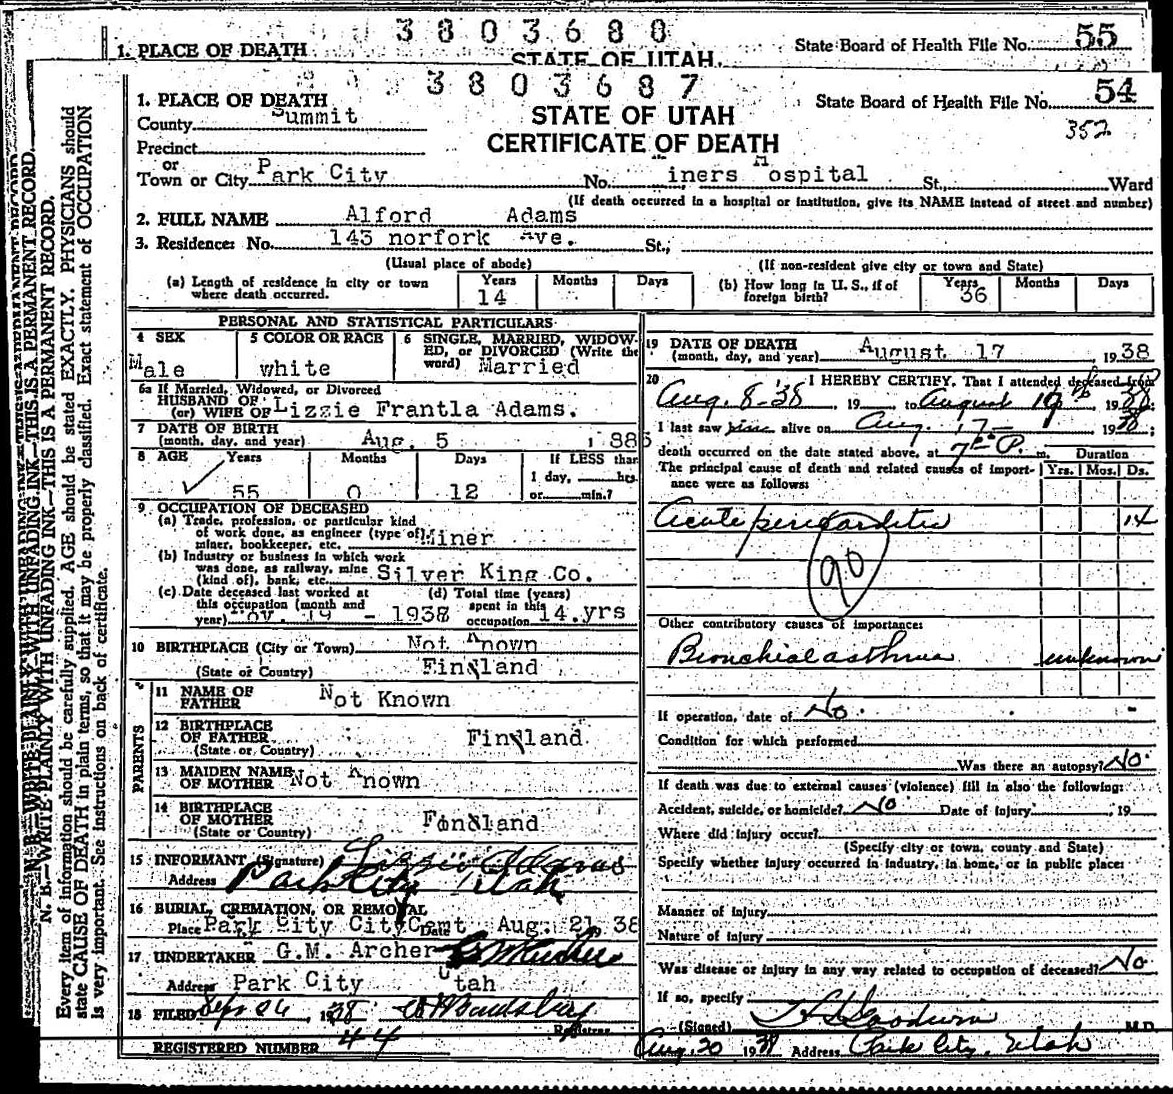 3803688
1. PLACE OF DEATH
STATE OF UTAH.
State Board of Health File No. 55
3803687
1. PLACE OF DEATH
State Board of Health File No. 54
352
County Summit
STATE OF UTAH
CERTIFICATE OF DEATH
Precinct
or
Town or City Park City No. Miners Hospital St., Ward
(If death occurred in a hospital or institution, give its NAME instead of street and number)
2. FULL NAME Alford Adams
3. Residence: No. 143 norfork Ave. St.,
(Usual place of abode) (If non-resident give city or town and State)
(a) Length of residence in city or town where death occurred. Years 14 Months Days
(b) How long in U. S., if of foreign birth? Years 36 Months Days
PERSONAL AND STATISTICAL PARTICULARS
4 SEX Male
5 COLOR OR RACE white
6 SINGLE, MARRIED, WIDOWED, or DIVORCED (Write the word) Married
6a If Married, Widowed, or Divorced
HUSBAND OF
(or) WIFE OF Lizzie Frantla Adams.
7 DATE OF BIRTH
(month, day, and year) Aug. 5 1886
8 AGE Years 55 Months 0 Days 12
If LESS than
1 day, hrs.
or min.?
9 OCCUPATION OF DECEASED
(a) Trade, profession, or particular kind
of work done, as engineer (type of),
miner, bookkeeper, etc. Miner
(b) Industry or business in which work
was done, as railway, mine
(kind of), bank, etc. Silver King Co.
(c) Date deceased last worked at
this occupation (month and
year) Nov. 19 - 1938
(d) Total time (years)
spent in this
occupation 14.yrs
10 BIRTHPLACE (City or Town) Not Known
(State or Country) Finland
PARENTS
11 NAME OF FATHER Not Known
12 BIRTHPLACE OF FATHER
(State or Country) Finland.
13 MAIDEN NAME OF MOTHER Not Known
14 BIRTHPLACE OF MOTHER
(State or Country) Finland
15 INFORMANT (Signature) Lizzie Adams
Address Park City Utah
16 BURIAL, CREMATION, OR REMOVAL
Place Park City City Cemt. Date Aug. 21, 38
17 UNDERTAKER G.M. Archer
Address Park City Utah
18 FILED 1938
Registrar
REGISTERED NUMBER 44
19 DATE OF DEATH
(month, day, and year) August 17 1938
20 I HEREBY CERTIFY, That I attended deceased from
Aug. 8-38, 19 to August 17, 1938
I last saw him alive on Aug. 17- 1938,
death occurred on the date stated above, at 7 P. m.
The principal cause of death and related causes of importance were as follows:
Duration
Yrs. Mos. Ds.
Acute pericarditis 14
90
Other contributory causes of importance:
Bronchial asthma unknown
If operation, date of No.
Condition for which performed
Was there an autopsy? No.
If death was due to external causes (violence) fill in also the following:
Accident, suicide, or homicide? No Date of injury , 19
Where did injury occur?
(Specify city or town, county and State)
Specify whether injury occurred in industry, in home, or in public place:
Manner of injury
Nature of injury
Was disease or injury in any way related to occupation of deceased? No
If so, specify
(Signed) M.D.
Aug. 20 1938 Address Park City, Utah
N. B.—WRITE PLAINLY WITH UNFADING INK—THIS IS A PERMANENT RECORD.
Every item of information should be carefully supplied. AGE should be stated EXACTLY. PHYSICIANS should
state CAUSE OF DEATH in plain terms, so that it may be properly classified. Exact statement of OCCUPATION
is very important. See instructions on back of certificate.